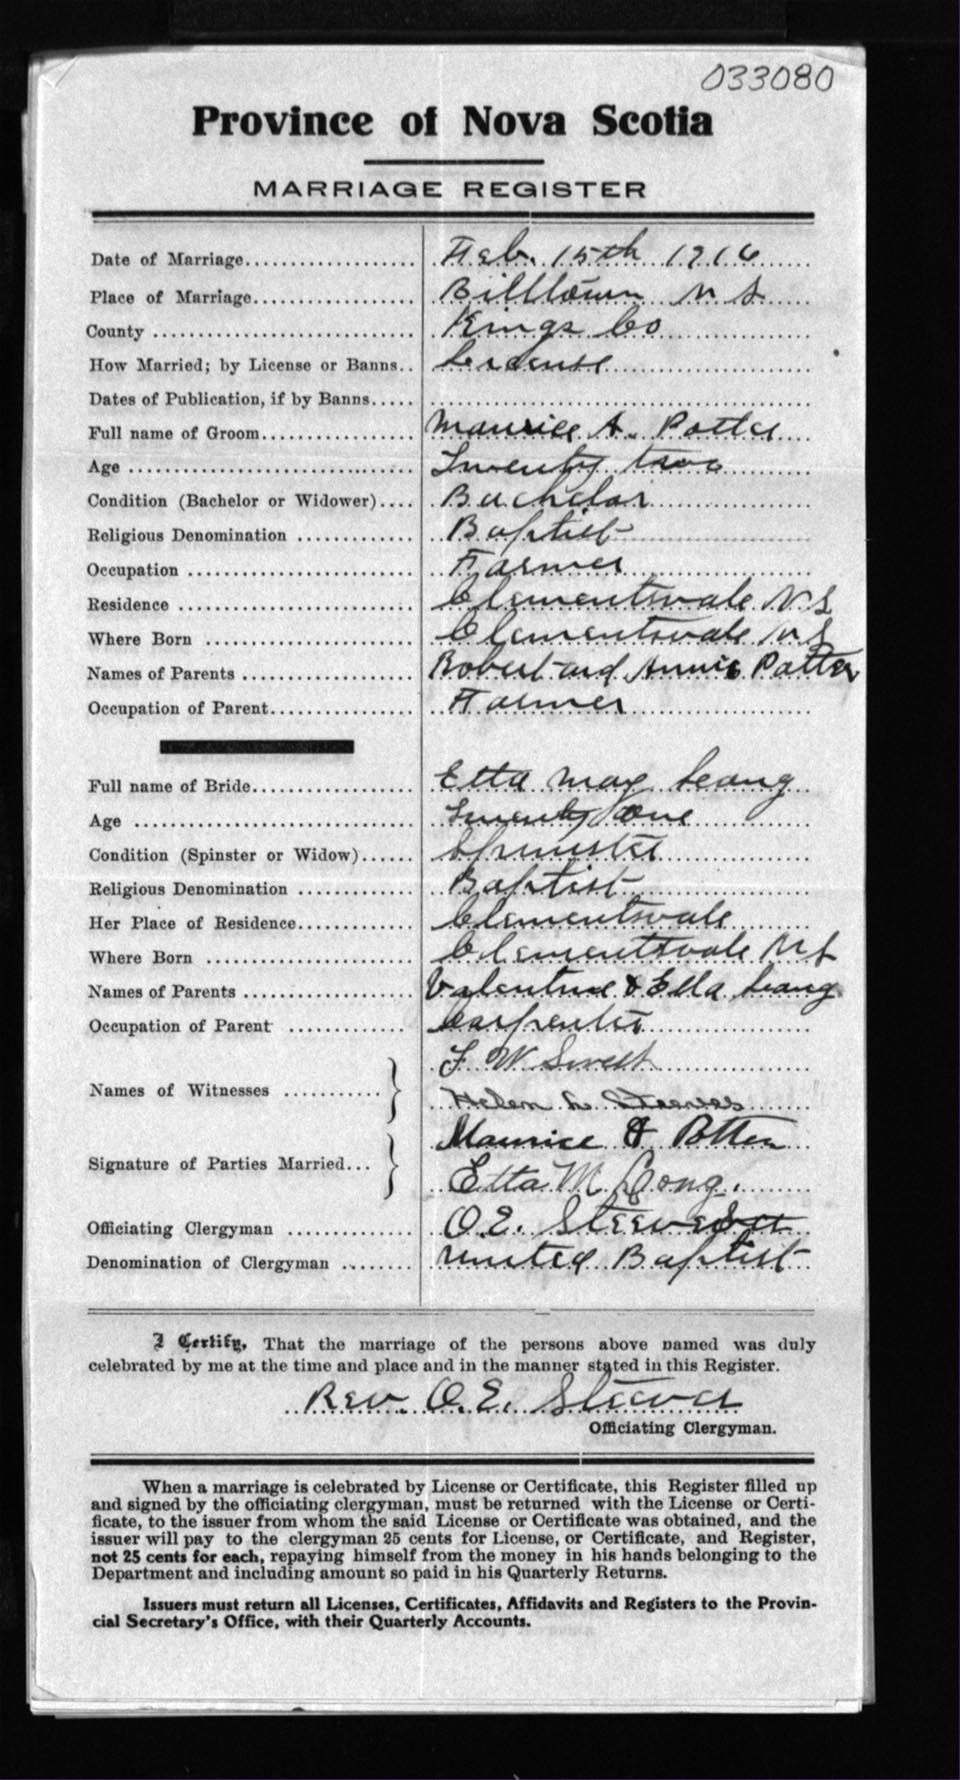 033080
Province of Nova Scotia
MARRIAGE REGISTER
Date of Marriage.................... Feb. 15th 1916
Place of Marriage.................. Billtown N S
County ............................ Kings Co
How Married; by License or Banns.. License
Dates of Publication, if by Banns.....
Full name of Groom................. Maurice A. Potter
Age ............................... Twenty two
Condition (Bachelor or Widower).... Bachelor
Religious Denomination ............ Baptist
Occupation ........................ Farmer
Residence ......................... Clementsvale N.S
Where Born ........................ Clementsvale N S
Names of Parents .................. Robert and Annie Potter
Occupation of Parent............... Farmer
Full name of Bride................. Etta May Long
Age ............................... Twenty one
Condition (Spinster or Widow)...... Spinster
Religious Denomination ............ Baptist
Her Place of Residence............. Clementsvale
Where Born ........................ Clementsvale N S
Names of Parents .................. Valentine & Ella Long
Occupation of Parent .............. Carpenter
F W Swett
Names of Witnesses ...........
Helen L. Steeves
Maurice A Potter
Signature of Parties Married...
Etta M Long.
Officiating Clergyman ............. O.E. Steeves
Denomination of Clergyman ........ United Baptist
I Certify, That the marriage of the persons above named was duly
celebrated by me at the time and place and in the manner stated in this Register.
Rev. O.E. Steeves
Officiating Clergyman.
When a marriage is celebrated by License or Certificate, this Register filled up
and signed by the officiating clergyman, must be returned with the License or Certi-
ficate, to the issuer from whom the said License or Certificate was obtained, and the
issuer will pay to the clergyman 25 cents for License, or Certificate, and Register,
not 25 cents for each, repaying himself from the money in his hands belonging to the
Department and including amount so paid in his Quarterly Returns.
Issuers must return all Licenses, Certificates, Affidavits and Registers to the Provin-
cial Secretary's Office, with their Quarterly Accounts.